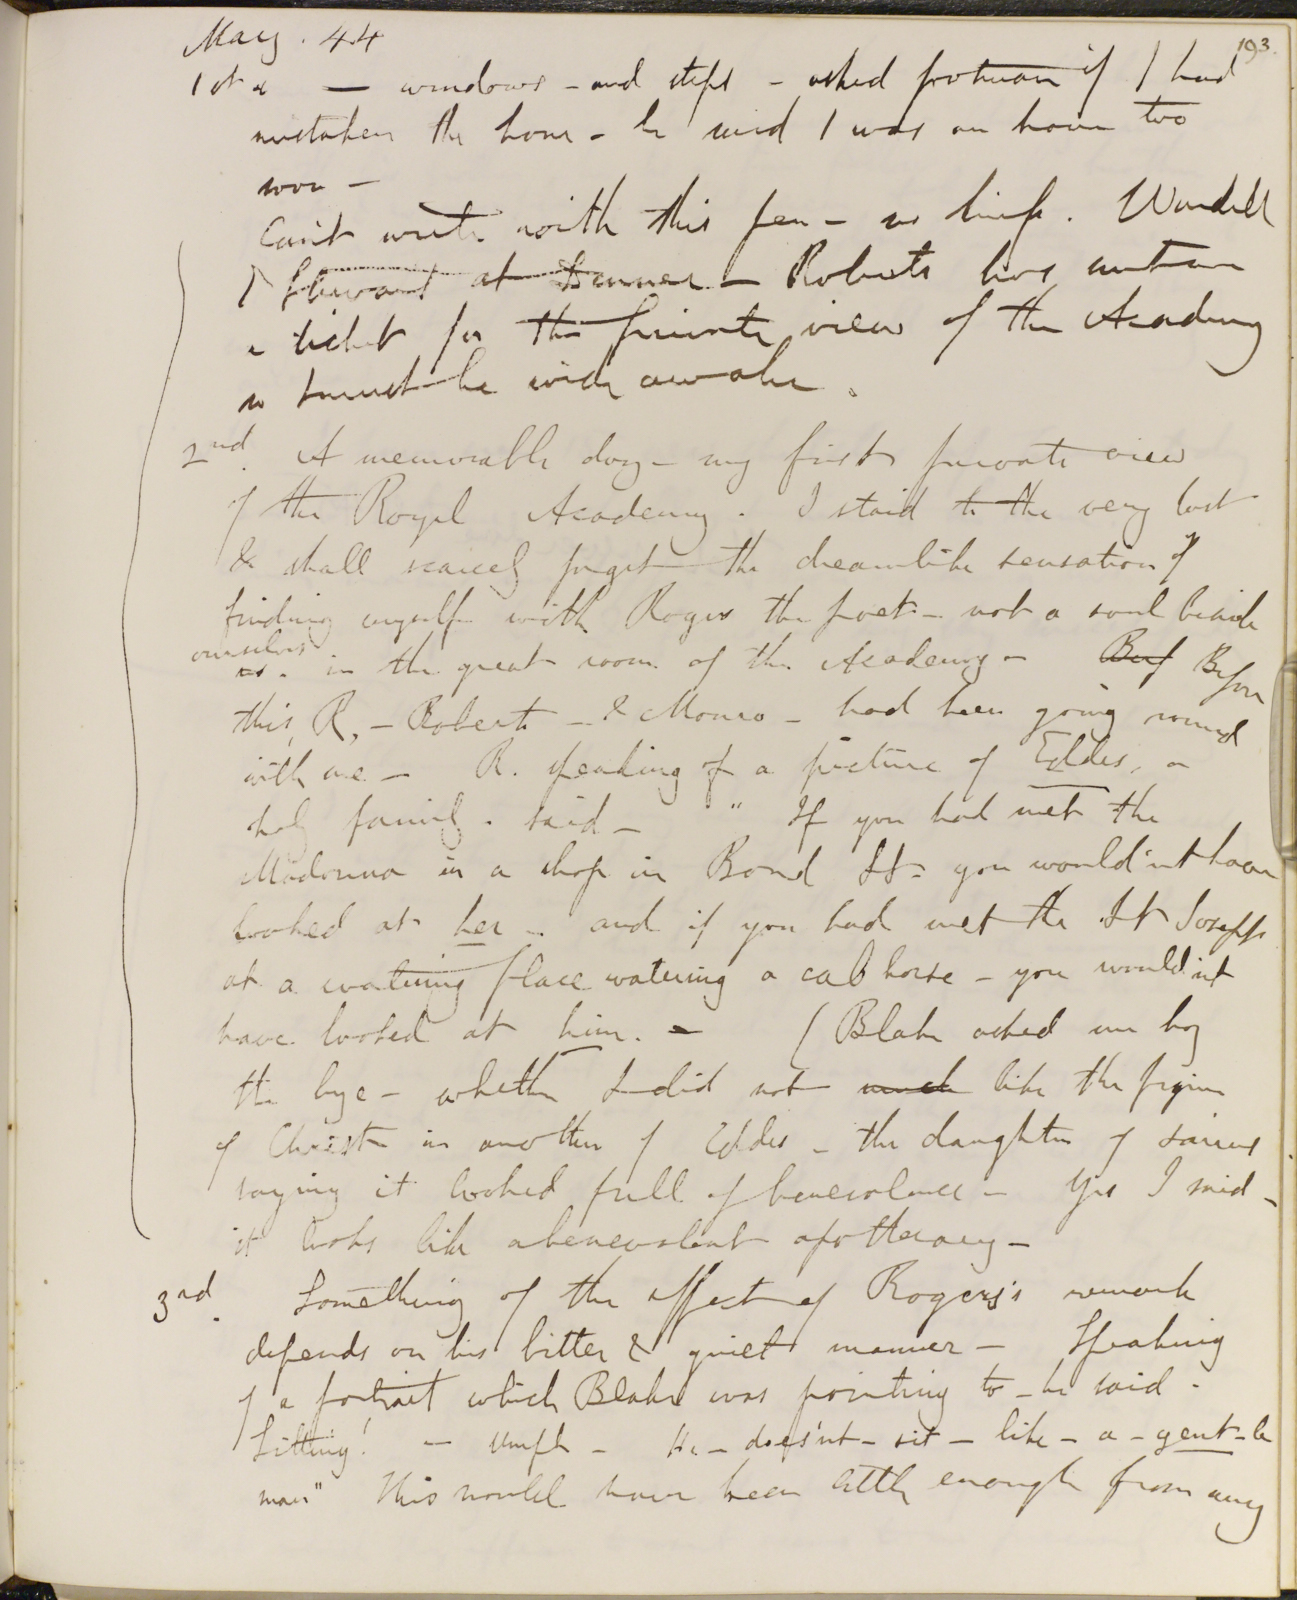 May. 44
193.
1st & — windows - and steps - asked footman if I had
mistaken the hour - he said I was an hour too
soon -
Can't write with this pen - so limp. Windell
& Steward at dinner - Roberts has
a ticket for the private view of the Academy
so I must be wide awake.
2nd. A memorable day - my first private view
of the Royal Academy. I staid to the very last
& shall scarcely forget the dreamlike sensation of
finding myself with Rogers the poet - not a soul beside
ourselves
us. in the great room of the Academy - Bef Before
this, R, - Roberts - & Monro - had been going round
with me - R. speaking of a picture of Eddis, a
holy family. said - " If you had met the
Madonna in a shop in Bond St. you would'nt have
looked at her - and if you had met the St Joseph
at a watering place watering a cab horse - you would'nt
have looked at him. - (Blake asked me by
the bye - whether I did not much like the figure
of Christ in another of Eddis - the daughter of Jairus
saying it looked full of benevolence - Yes I said -
it looks like a benevolent apothecary -
3rd. Something of the effect of Rogers's remark
depends on his bitter & quiet manner - Speaking
of a portrait which Blake was pointing to - he said -
Sitting! - umph - He - does'nt - sit - like - a - gent-le
man" This would have been little enough from any